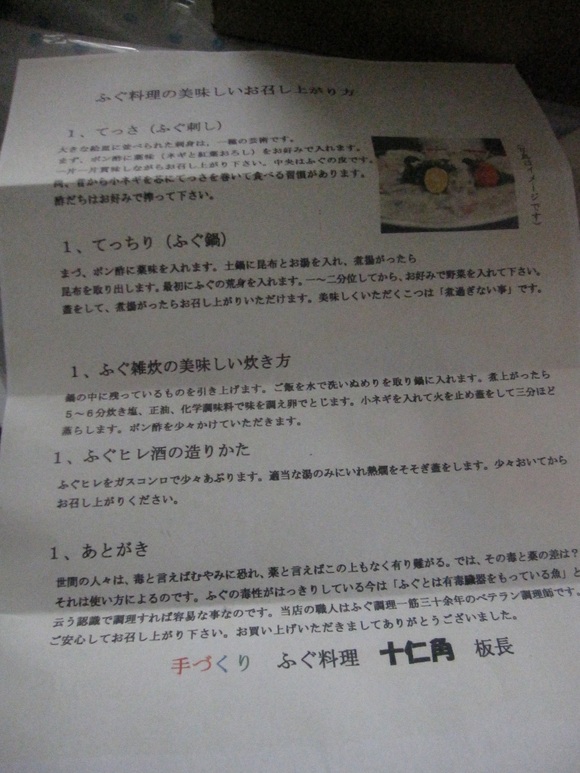 ふぐ料理の美味しいお召し上がり方
1、てっさ（ふぐ刺し）
大きな絵皿に並べられた刺身は、一種の芸術です。
まず、ポン酢に薬味（ネギと紅葉おろし）をお好みで入れます。
一片一片賞味しながらお召し上がり下さい。中央はふぐの皮です。
尚、昔から小ネギを芯にてっさを巻いて食べる習慣があります。
酢だちはお好みで搾って下さい。
（写真はイメージです）
1、てっちり（ふぐ鍋）
まづ、ポン酢に薬味を入れます。土鍋に昆布とお湯を入れ、煮湯がったら
昆布を取り出します。最初にふぐの荒身を入れます。一～二分位してから、お好みで野菜を入れて下さい。
蓋をして、煮湯がったらお召し上がりいただけます。美味しくいただくこつは「煮過ぎない事」です。
1、ふぐ雑炊の美味しい炊き方
鍋の中に残っているものを引き上げます。ご飯を水で洗いぬめりを取り鍋に入れます。煮上がったら
5～6分炊き塩、正油、化学調味料で味を調え卵でとじます。小ネギを入れて火を止め蓋をして三分ほど
蒸らします。ポン酢を少々かけていただきます。
1、ふぐヒレ酒の造りかた
ふぐヒレをガスコンロで少々あぶります。適当な湯のみにいれ熱燗をそそぎ蓋をします。少々おいてから
お召し上がりください。
1、あとがき
世間の人々は、毒と言えばむやみに恐れ、薬と言えばこの上もなく有り難がる。では、その毒と薬の差は？
それは使い方によるのです。ふぐの毒性がはっきりしている今は「ふぐとは有毒臓器をもっている魚」と
云う認識で調理すれば容易な事なのです。当店の職人はふぐ調理一筋三十余年のベテラン調理師です。
ご安心してお召し上がり下さい。お買い上げいただきましてありがとうございました。
手づくり　ふぐ料理　十仁角　板長